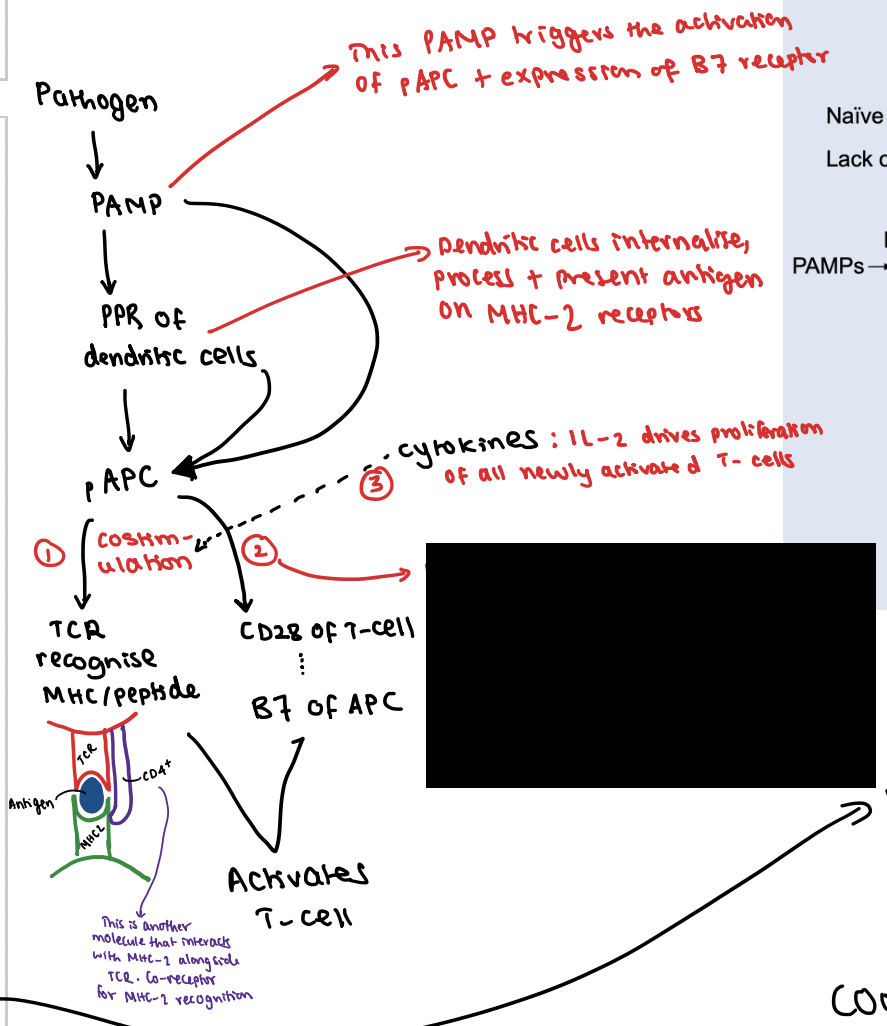 This PAMP triggers the activation
of pAPC + expression of B7 receptor
Pathogen
Naïve
Lack
PAMP
Dendritic cells internalise,
process + present antigen
on MHC-2 receptors
PAMPs →
PPR of
dendritic cells
cytokines : IL-2 drives proliferation
of all newly activated T-cells
pAPC
③
①
costim-
ulation
②
TCR
recognise
MHC/peptide
CD28 of T-cell
B7 of APC
TCR
CD4+
Antigen
MHC2
Activates
T-cell
This is another
molecule that interacts
with MHC-2 alongside
TCR. Co-receptor
for MHC-2 recognition